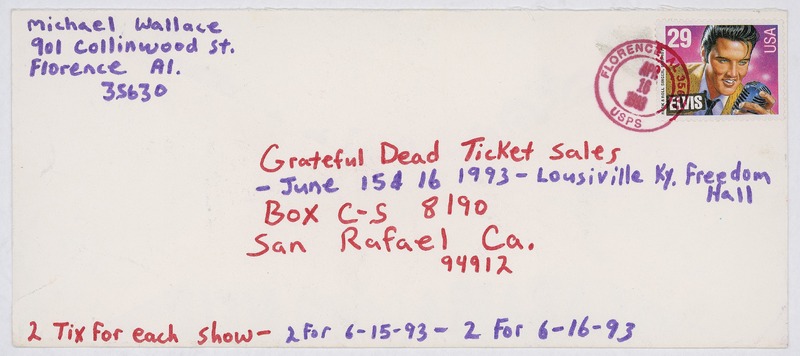 Michael Wallace
901 Collinwood St.
Florence Al.
35630
FLORENCE, AL 356
APR
16
1993
USPS
29
USA
ELVIS
Grateful Dead Ticket Sales
- June 15 & 16 1993 - Lousiville Ky. Freedom
Hall
Box C-S 8190
San Rafael Ca.
94912
2 Tix For each show - 2 For 6-15-93 - 2 For 6-16-93